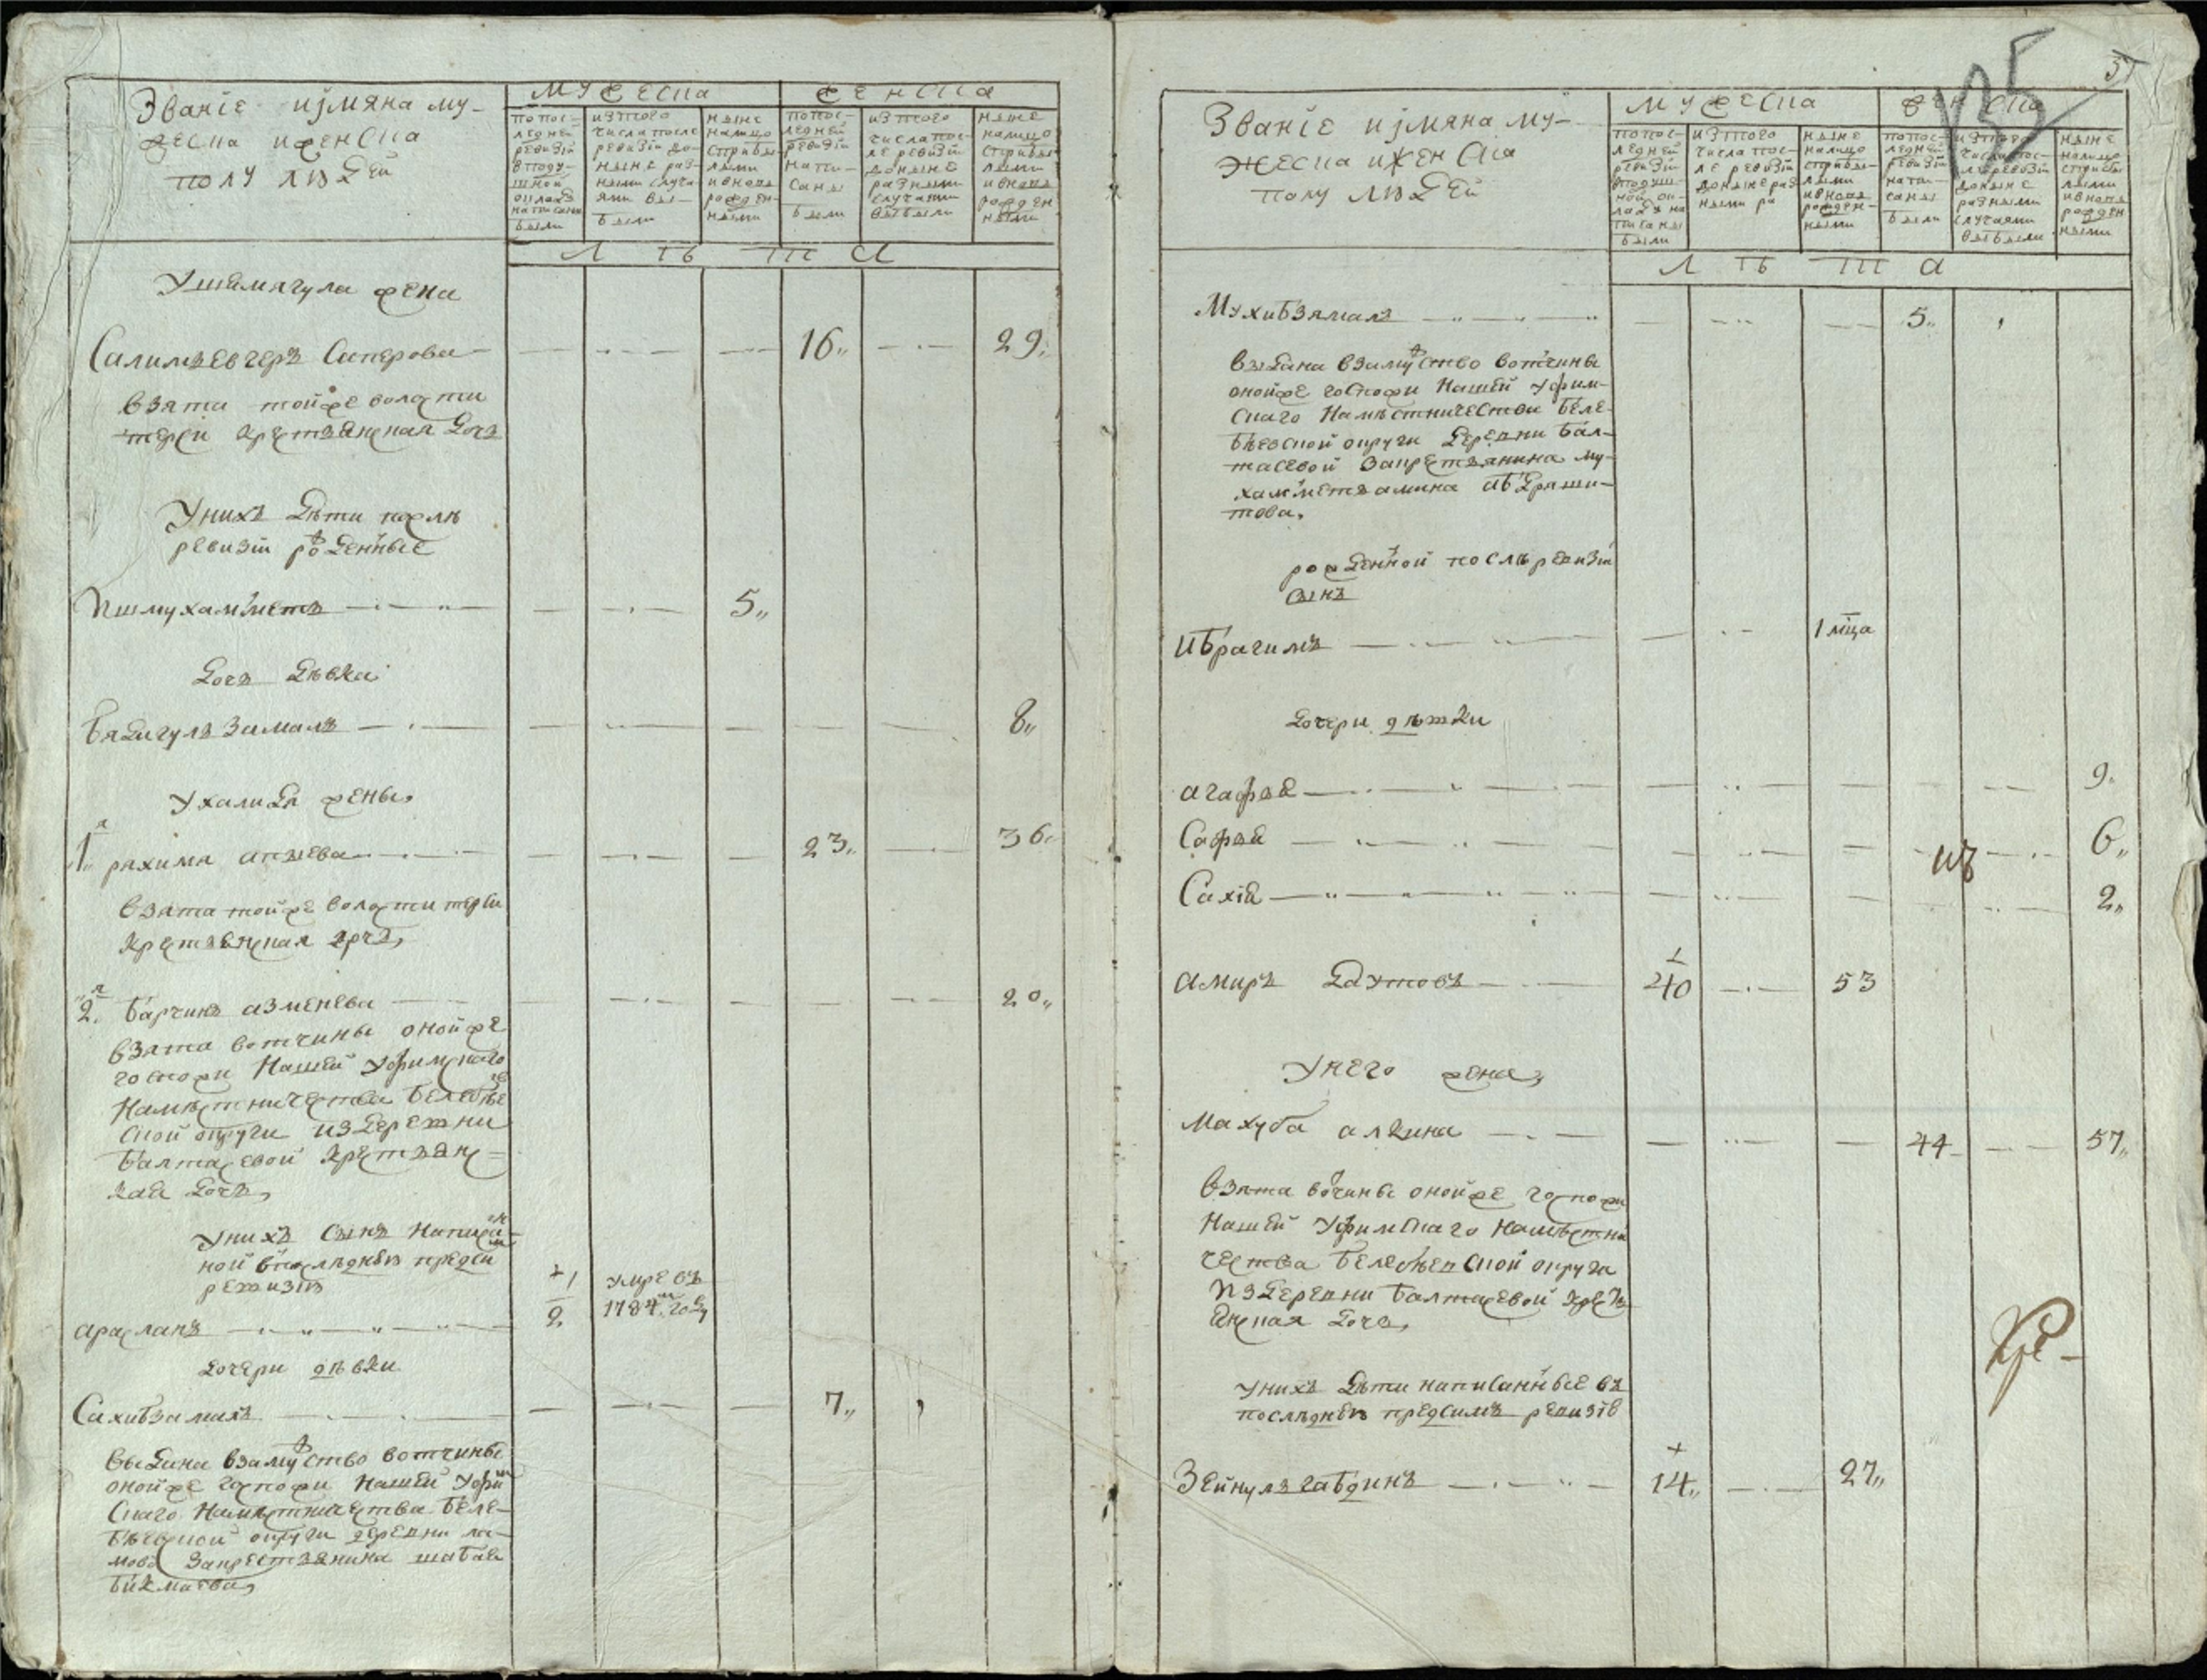 Званїе иjмяна му-
жеска иженска
полу людей
мужеска
женска
попос-
ледней
ревизїи
вподу-
шной
окладъ
написаны
были
изтого
числа после
ревизїи до-
ныне раз-
ными случа-
ями вы-
были
ныне
налицо
сприбы-
лыми
ивновь
рожден-
ными
попос-
ледней
ревизїи
напи-
саны
были
изтого
числа пос-
ле ревизїи
доныне
разными
случаями
выбыли
ныне
налицо
сприбы-
лыми
ивновь
рожден
ными
л ѣ т а
Уишмягула жена
Салимъевчеръ Сиперова
взята тойже волости
терси крестьянская дочь
Унихъ дѣти послѣ
ревизїи рожденные
Ишмухамметъ 5,,
дочь дѣвка
Бядигулъзамалъ 8,,
Ухалида жены,
1я рахима апзева 23,, 36,,
взята тойже волости терси
крестьянская дочь,
2я Барчинъ азменева 20,,
взята вотчины онойже
госпожи Нашей Уфимскаго
Намѣстничества Белебѣев
ской округи издеревни
Балтасевой крестьянс=
кая дочь,
Унихъ сынъ Написан-
ной впослѣднѣй предсим
ревизїи
арасланъ 1/2. умре въ
1784м году
дочери дѣвки
Сахибзамалъ 7,,
выдана взамужство вотчины
онойже госпожи нашей Уфим
скаго Намѣстничества Беле-
бѣевской округи деревни
закрестьянина шабая
бикмаева,
Званїе иjмяна му-
жеска ижен ска
полу людей
мужеска
женска
попос-
ледней
ревизїи
вподуш-
ной ок-
ладъ на
писаны
были
изтого
числа пос-
ле ревизїи
доныне раз-
ными ра
ныне
налицо
сприбы-
лыми
ивновь
рожден-
ными
попос-
ледней
ревизїи
напи-
саны
были
изтого
числа пос-
ле ревизїи
доныне
разными
случаями
выбыли
ныне
налицо
сприбы
лыми
ивновь
рожден
ными
л ѣ т а
Мухибзямалъ 5,,
выдана взамужство вотчины
онойже госпожи Нашей Уфим-
скаго Намѣстничества Беле-
бѣевской округи деревни Бал-
тасевой закрестьянина му-
хамметьамина абдраши-
това.
рожденной послѣ ревизїи
сынъ
ибрагимъ 1 мца
дочери дѣвки
агафья 9.
Сафья 6,,
Сахїя 2,,
Амиръ Даутовъ 40 53
Унего жена,
Махуба алкина 44 57,,
взята вотчины онойже госпожи
Нашей Уфимскаго намѣстни
чества Белебѣевской округи
Издеревни Балтасевой кресть
янская дочь,
Унихъ дѣти написанные въ
послѣднѣй предсимъ ревизїи
Зейнулъгабдинъ 14,, 27,,